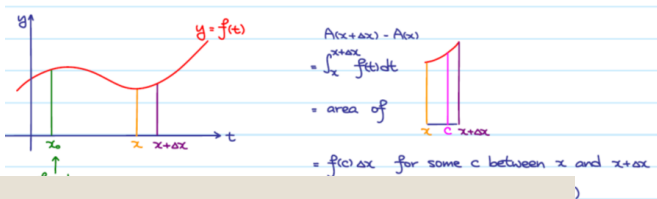 y
y = f(t)
x₀ x x+Δx t
A(x+Δx) - A(x)
= ∫ₓˣ⁺Δˣ f(t)dt
= area of
x c x+Δx
= f(c) Δx for some c between x and x+Δx
)